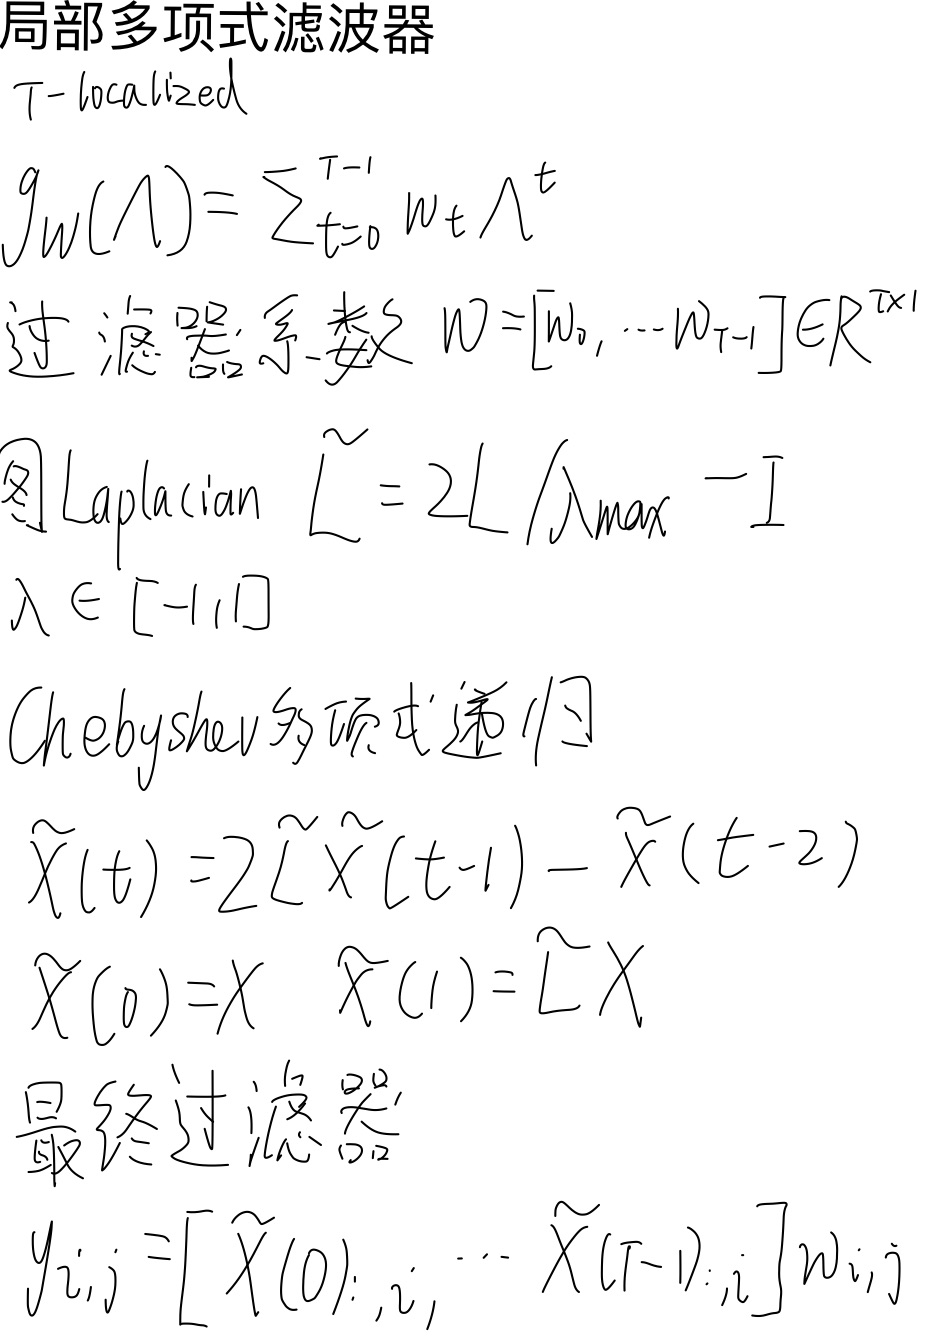 局部多项式滤波器
T-localized
g_w(Λ)=∑_{t=0}^{T-1} w_t Λ^t
过滤器系数 W=[w_0,…w_{T-1}]∈R^{T×1}
图Laplacian L̃=2L/λ_max -I
λ∈[-1,1]
Chebyshev多项式递归
X̃(t)=2L̃X̃(t-1)-X̃(t-2)
X̃(0)=X X̃(1)=L̃X
最终过滤器
y_{i,j}=[X̃(0)_{:,i},…X̃(T-1)_{:,i}]w_{i,j}